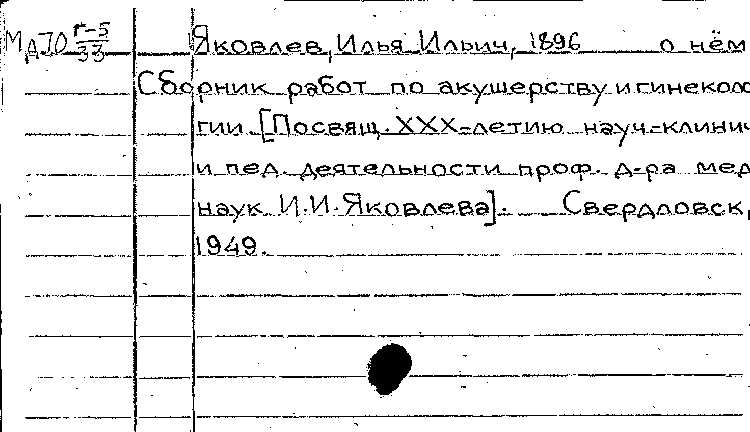 МД70 Г-5/33 Яковлев, Илья Ильич, 1896 о нём
Сборник работ по акушерству и гинеколо
гии [Посвящ. XXX-летию науч-клинич
и пед. деятельности проф. д-ра мед
наук И.И. Яковлева]. Свердловск,
1949.